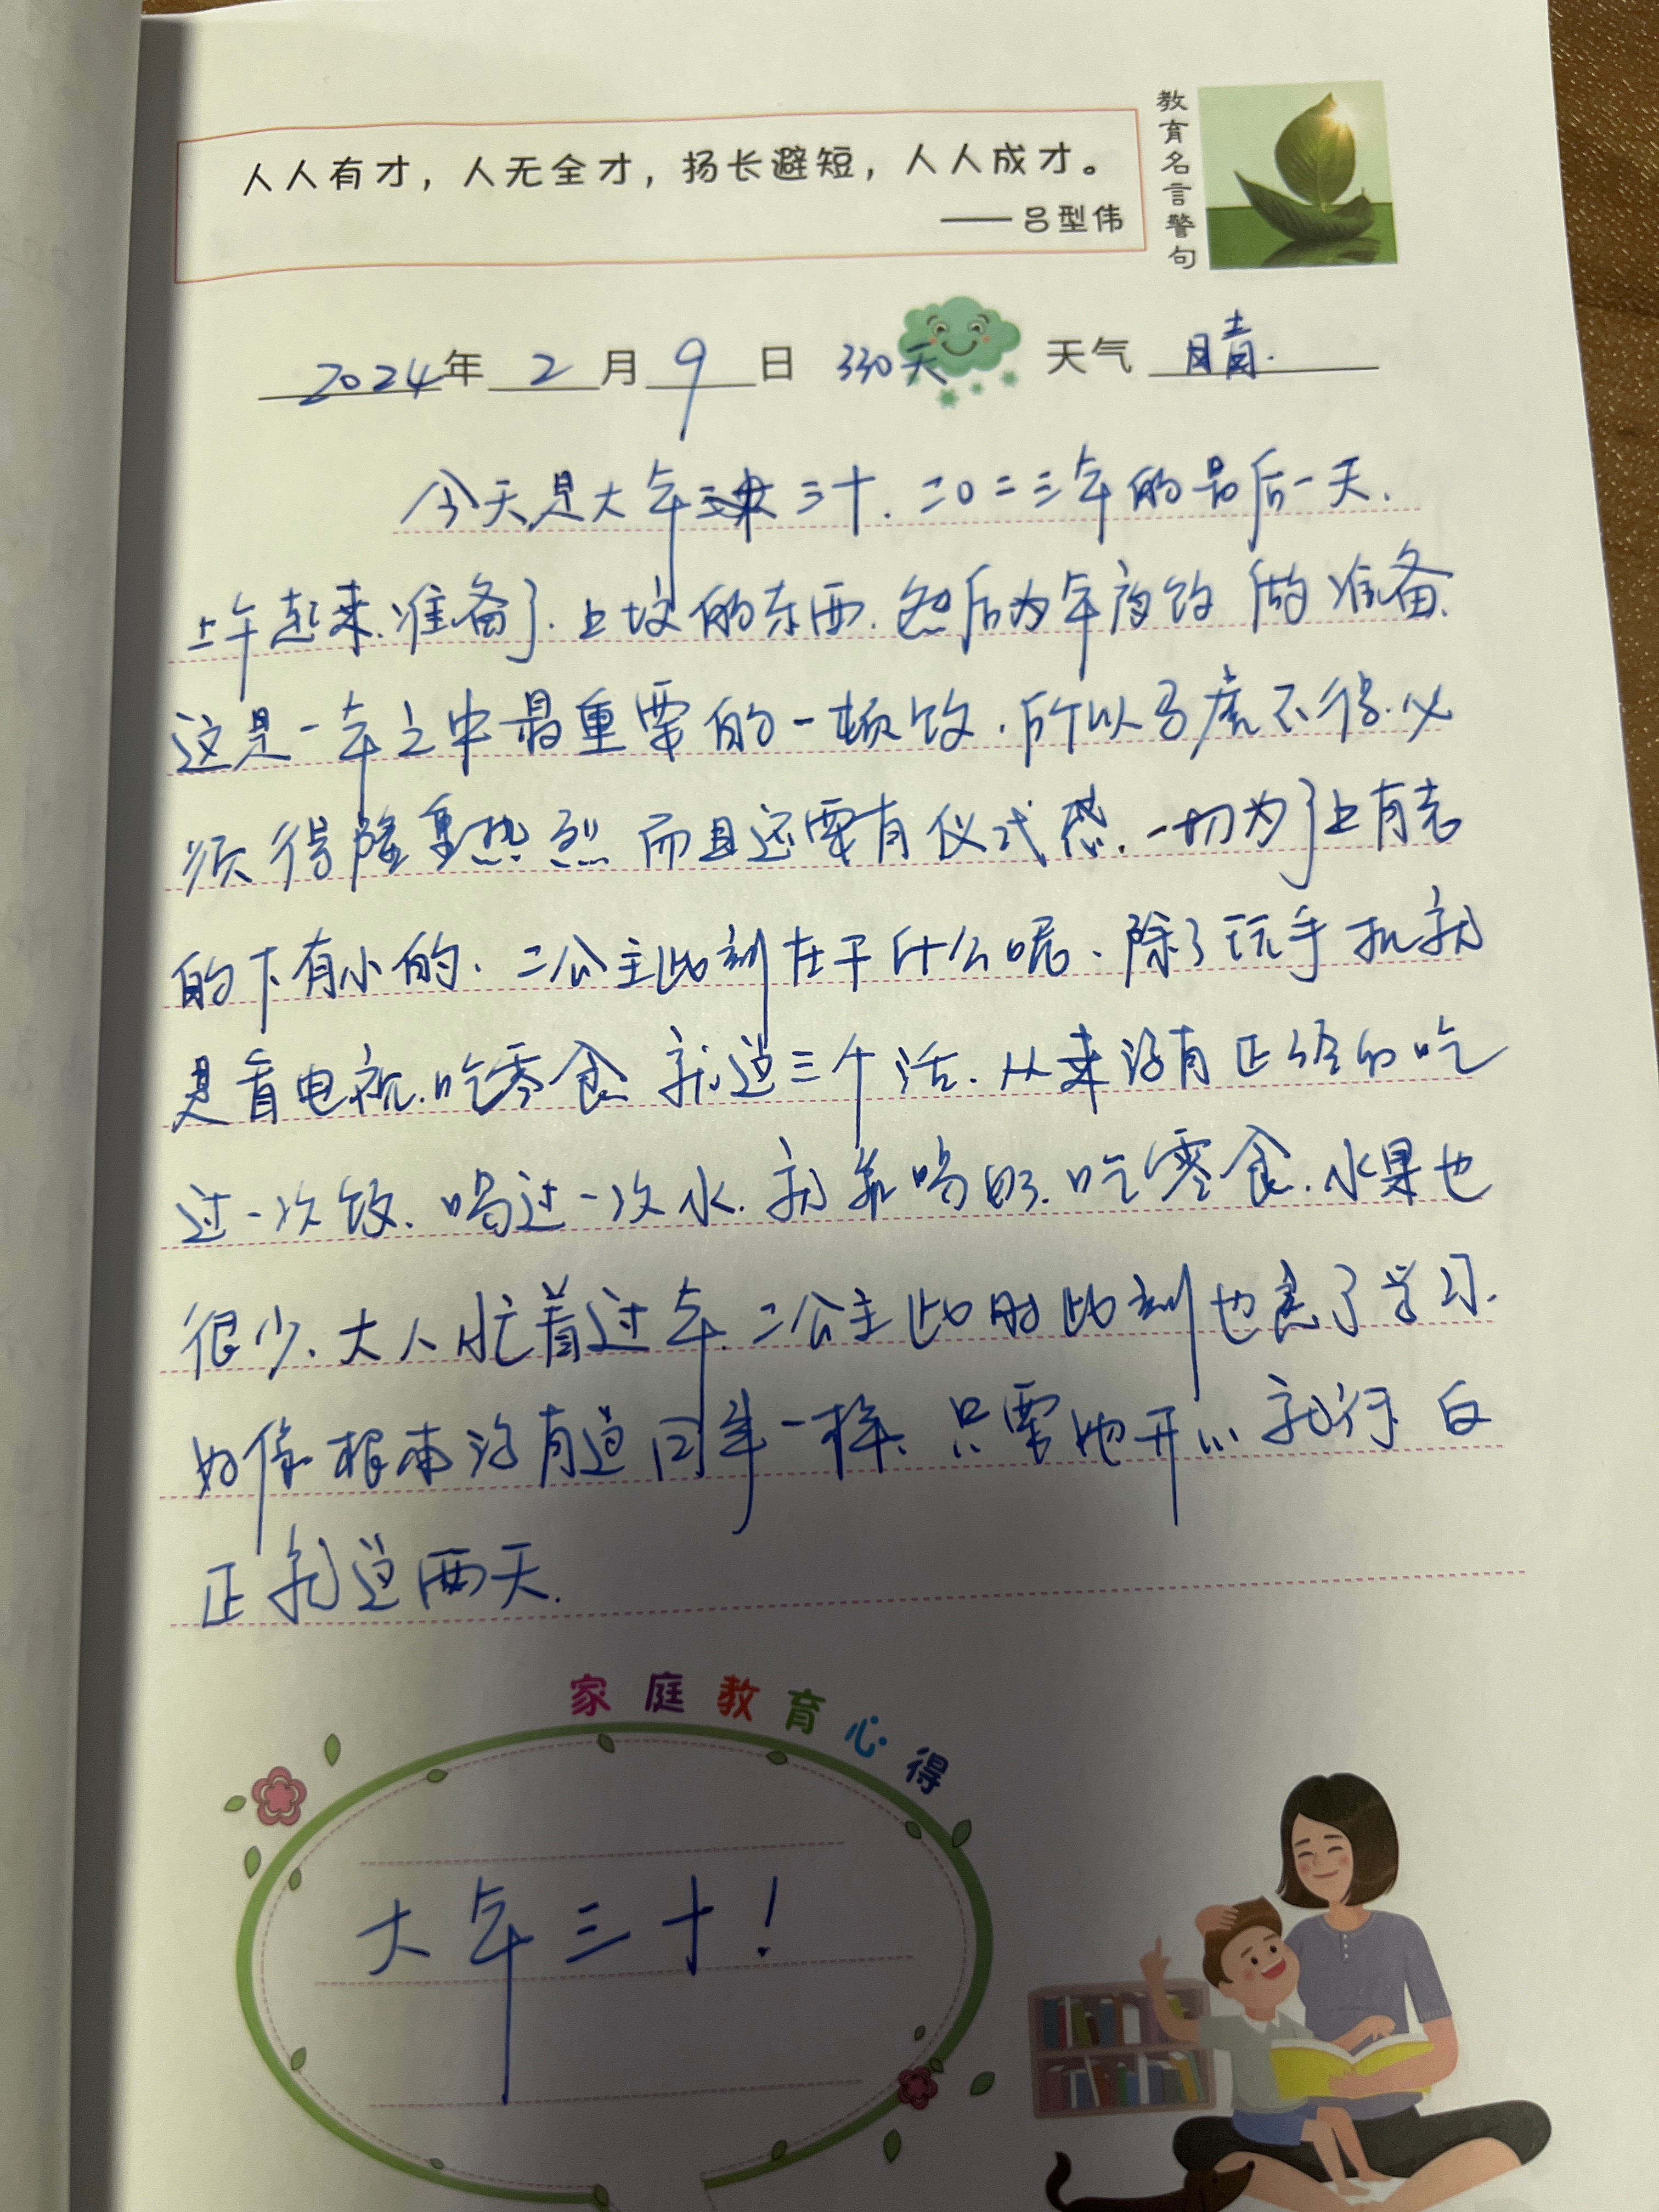 人人有才，人无全才，扬长避短，人人成才。
——吕型伟
教育名言警句
2024年 2 月 9 日 330天 天气 晴.
今天是大年三十.二〇二三年的最后一天.
上午起来.准备了.上坟的东西.然后为年夜饭做准备.
这是一年之中最重要的一顿饭.所以马虎不得.必
须得隆重热烈而且还要有仪式感.一切为了上有老
的下有小的.二公主此刻在干什么呢、除了玩手机就
是看电视.吃零食就这三个活.从来没有正经的吃
过一次饭.喝过一次水.就靠喝奶.吃零食.水果也
很少.大人忙着过年.二公主此时此刻也忘了学习.
好像根本没有这回事一样.只要她开心就行反
正就这两天.
家庭教育心得
大年三十！